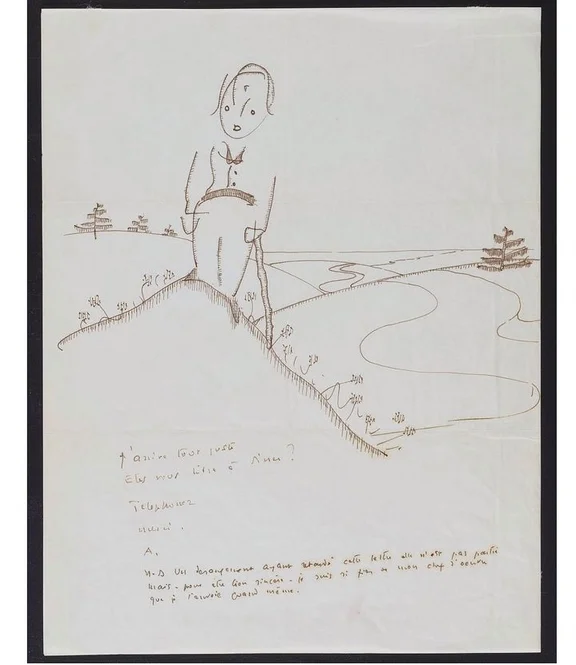 J'arrive tout juste
Etes vous libre à diner ?
Telephonez
merci.
A.
N-B Un derangement ayant retardé cette lettre elle n'est pas partie
mais - pour etre bon sincère - je suis si fier de mon chef d'oeuvre
que je l'envoie quand même.